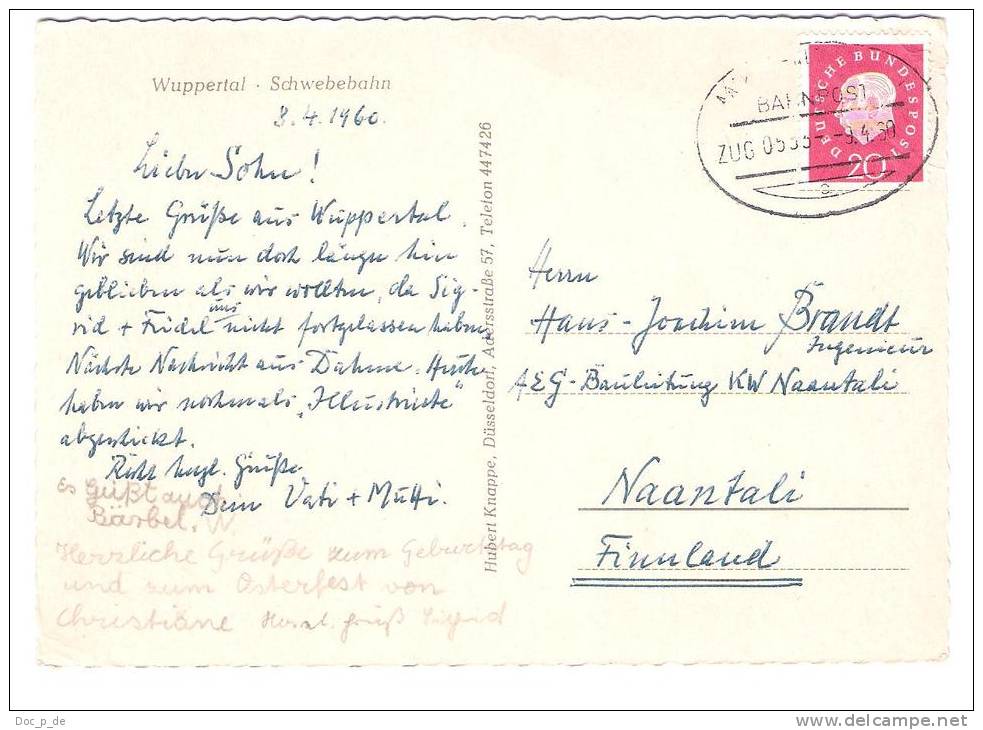 Wuppertal · Schwebebahn
8.4.1960.
Lieber Sohn!
Letzte Grüße aus Wuppertal.
Wir sind nun doch länger hier
geblieben als wir wollten, da Sig-
rid + Friedel uns nicht fortgelassen haben.
Nächste Nachricht aus Dahme. Heute
haben wir nochmals „Illustrierte“
abgeschickt.
Recht herzl. Grüße
Dein Vati + Mutti.
Es grüßt auch
Bärbel.
Herzliche Grüße zum Geburtstag
und zum Osterfest von
Christiane Herzl. Gruß Sigrid
Hubert Knappe, Düsseldorf, Adersstraße 57, Telefon 447426
DEUTSCHE BUNDESPOST
20
BAHNPOST
ZUG
.4.60
Herrn
Hans-Joachim Brandt
Ingenieur
AEG-Bauleitung KW Naantali
Naantali
Finnland
Doc_p_de
www.delcampe.net